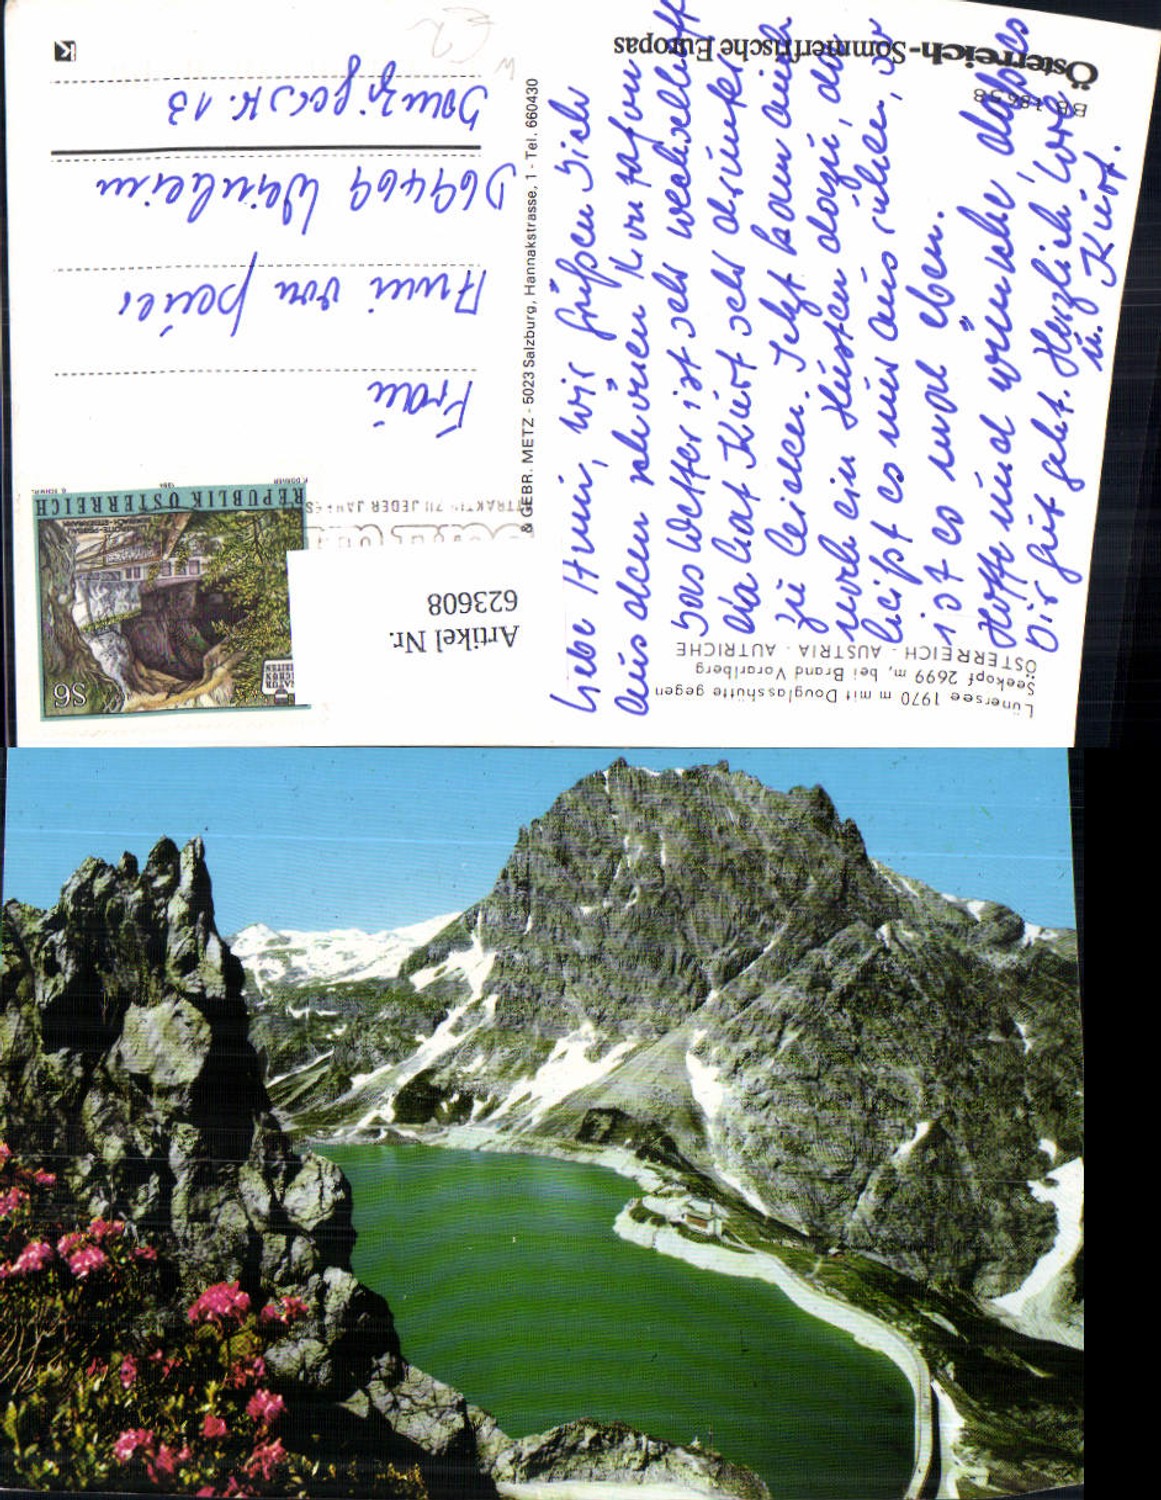 Österreich-Sommerfrische Europas
Lünersee 1970 m mit Douglasshütte gegen
Seekopf 2699 m, bei Brand Vorarlberg
ÖSTERREICH - AUSTRIA - AUTRICHE
Liebe Anni, wir grüßen Dich
aus dem schönen Montafon
Das Wetter ist sehr wechselhaft
da hat Kurt sehr drunter
zu leiden. Jetzt kam auch
noch ein Husten dazu, da
heißt es nur aus ruhen,
ist es mal eben.
Hoffe und wünsche, daß es
Dir gut geht. Herzlich
u. Kurt.
& GEBR. METZ - 5023 Salzburg, Hannakstrasse, 1 - Tel. 660430
Artikel Nr.
623608
S6
REPUBLIK ÖSTERREICH
ATTRAKTIV ZU JEDER JAHRES
Frau
Anni von
D69469 Weinheim
Danzigerstr. 13